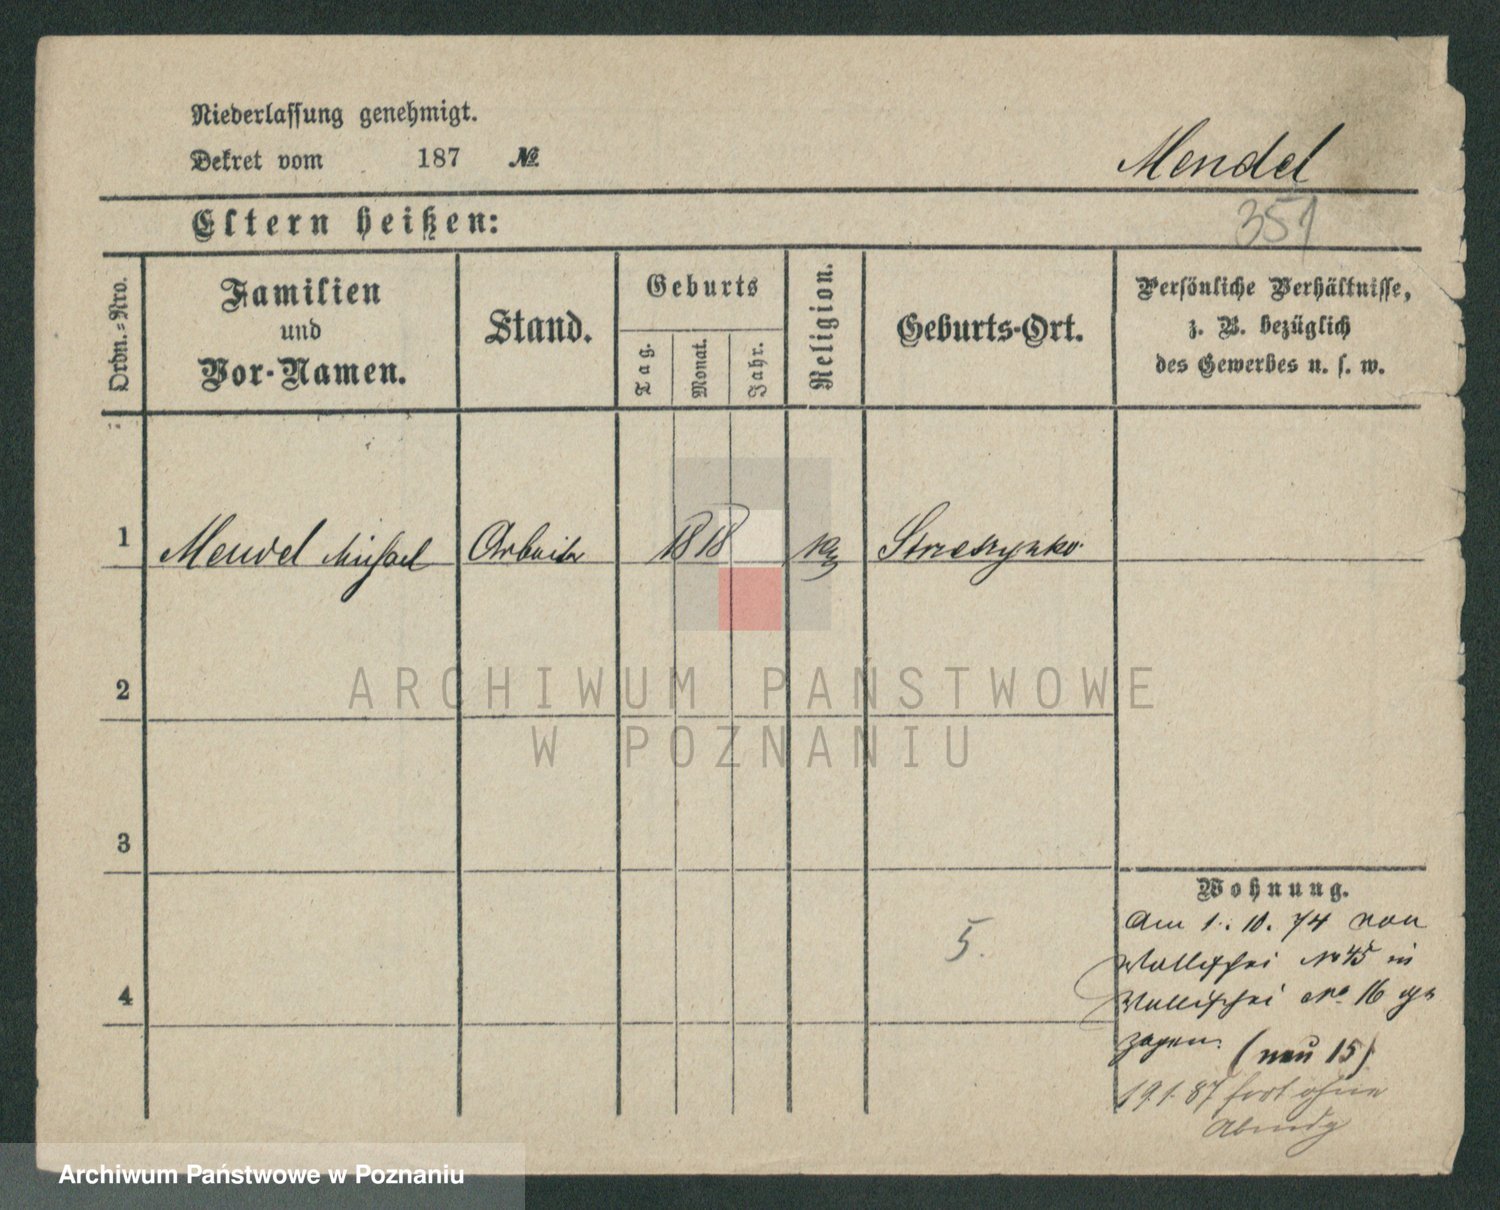 Niederlassung genehmigt.
Dekret vom 187 №
Mendel
351
Eltern heißen:
Ordn.-Nro.
Familien
und
Vor-Namen.
Stand.
Geburts
Tag.
Monat.
Jahr.
Religion.
Geburts-Ort.
Persönliche Verhältnisse,
z. B. bezüglich
des Gewerbes u. s. w.
1 Mendel Michael Arbeiter 1818
2
3
4
5.
Wohnung.
Am 1. 10. 74 von
Wallischei No 45 in
Wallischei No 16 ge
zogen. (neu 15)
19.1.87 fort ohne
Abmldg
ARCHIWUM PAŃSTWOWE
W POZNANIU
Archiwum Państwowe w Poznaniu